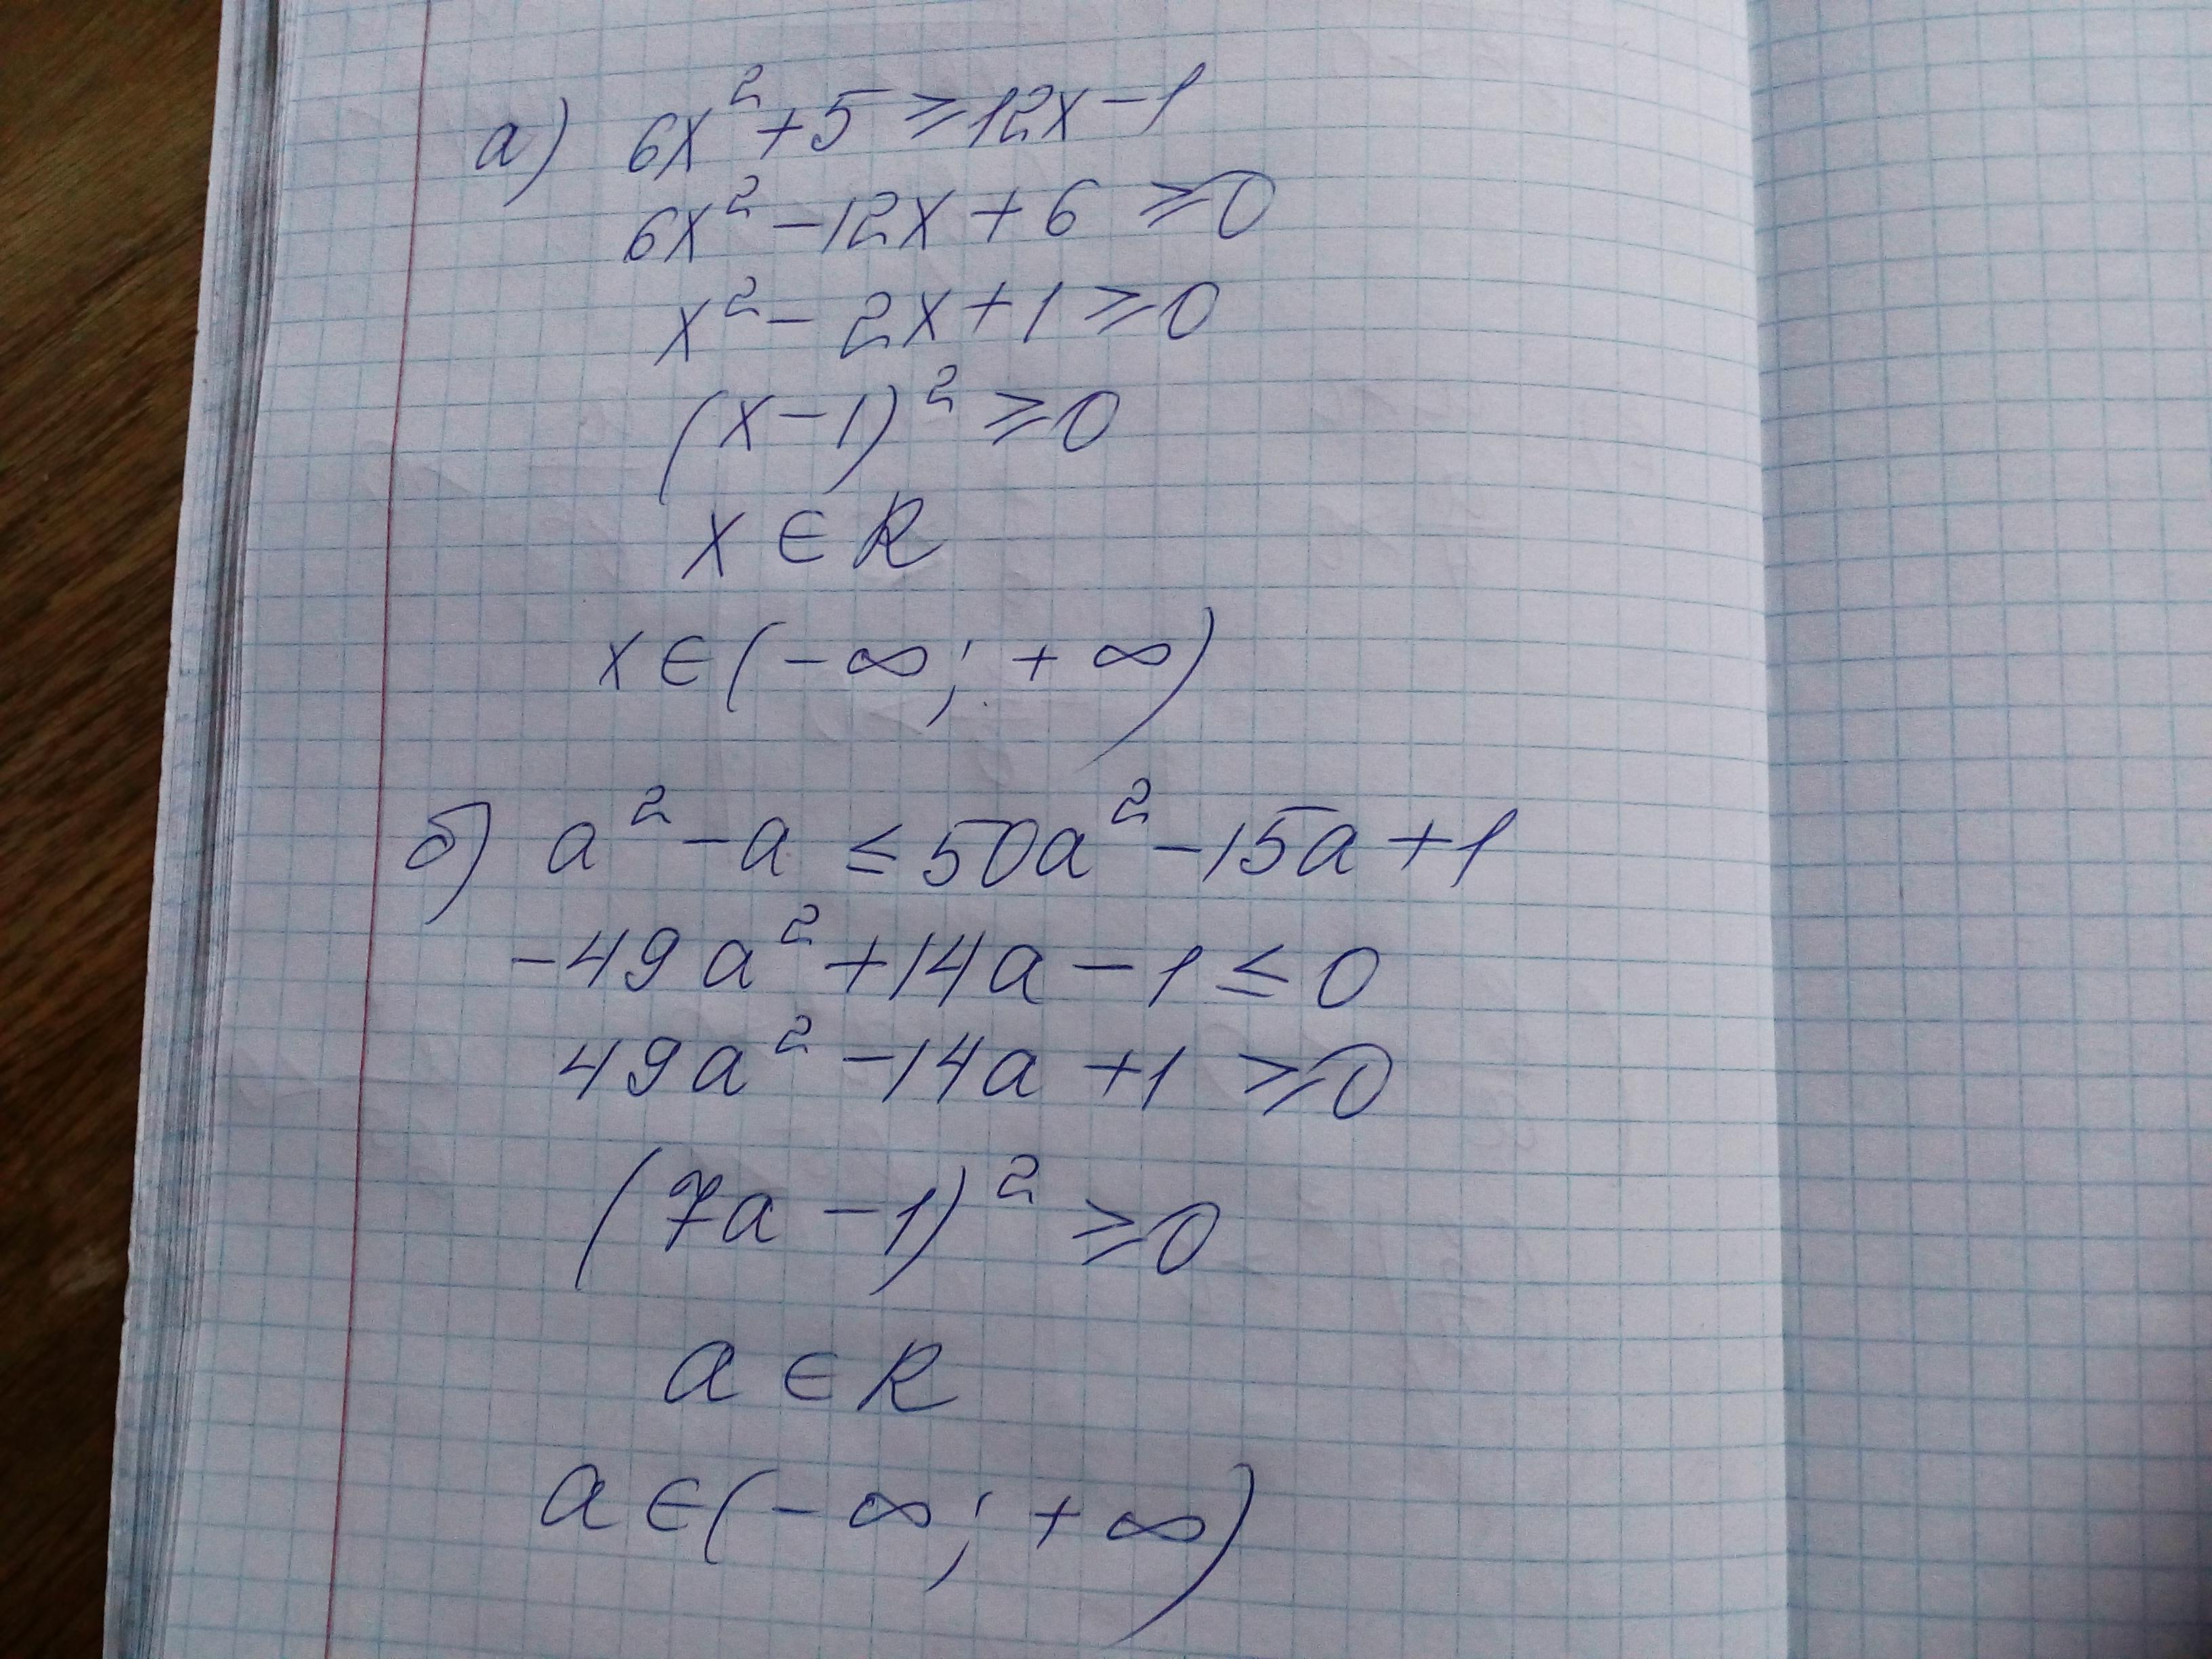 а) 6x² + 5 ⩾ 12x − 1
6x² − 12x + 6 ⩾ 0
x² − 2x + 1 ⩾ 0
(x − 1)² ⩾ 0
x ∈ R
x ∈ (−∞; +∞)
б) a² − a ≤ 50a² − 15a + 1
−49a² + 14a − 1 ≤ 0
49a² − 14a + 1 ⩾ 0
(7a − 1)² ⩾ 0
a ∈ R
a ∈ (−∞; +∞)